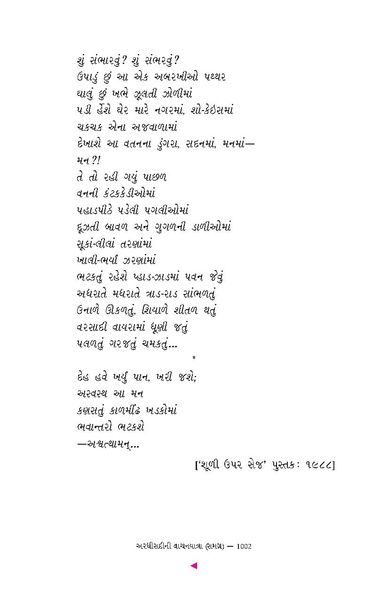 શું સંભારવું? શું સંભરવું?
ઉપાડું છું આ એક અબરખીઓ પથ્થર
ઘાલું છું ખભે ઝૂલતી ઝોળીમાં
પડી હેંશે ઘેર મારે નગરમાં, શો-કેઇસમાં
ચકચક એના અજવાળામાં
દેખાશે આ વતનના ડુંગરા, સદનમાં, મનમાં—
મન ?!
તે તો રહી ગયું પાછળ
વનની કંટકકેડીઓમાં
પહાડપીઠે પડેલી પગલીઓમાં
દૂઝતી બાવળ અને ગુગળની ડાળીઓમાં
સૂકાં-લીલાં તરણાંમાં
ખાલી-ભર્યાં ઝરણાંમાં
ભટકતું રહેશે પ્હાડ-ઝાડમાં પવન જેવું
અધરાતે મધરાતે ત્રાડ-રાડ સાંભળતું
ઉનાળે ઊકળતું, શિયાળે શીતળ થતું
વરસાદી વાયરામાં ધૂણી જતું
પલળતું ગરજતું ચમકતું...
*
દેહ હવે ખર્યું પાન, ખરી જશે;
અસ્વસ્થ આ મન
કણસતું કાળમીંઢ ખડકોમાં
ભવાન્તરો ભટકશે
—અશ્વત્થામન્...
['શૂળી ઉપર સેજ' પુસ્તક: ૧૯૮૮]
અરધીસદીની વાચનયાત્રા (સમગ્ર) — 1002